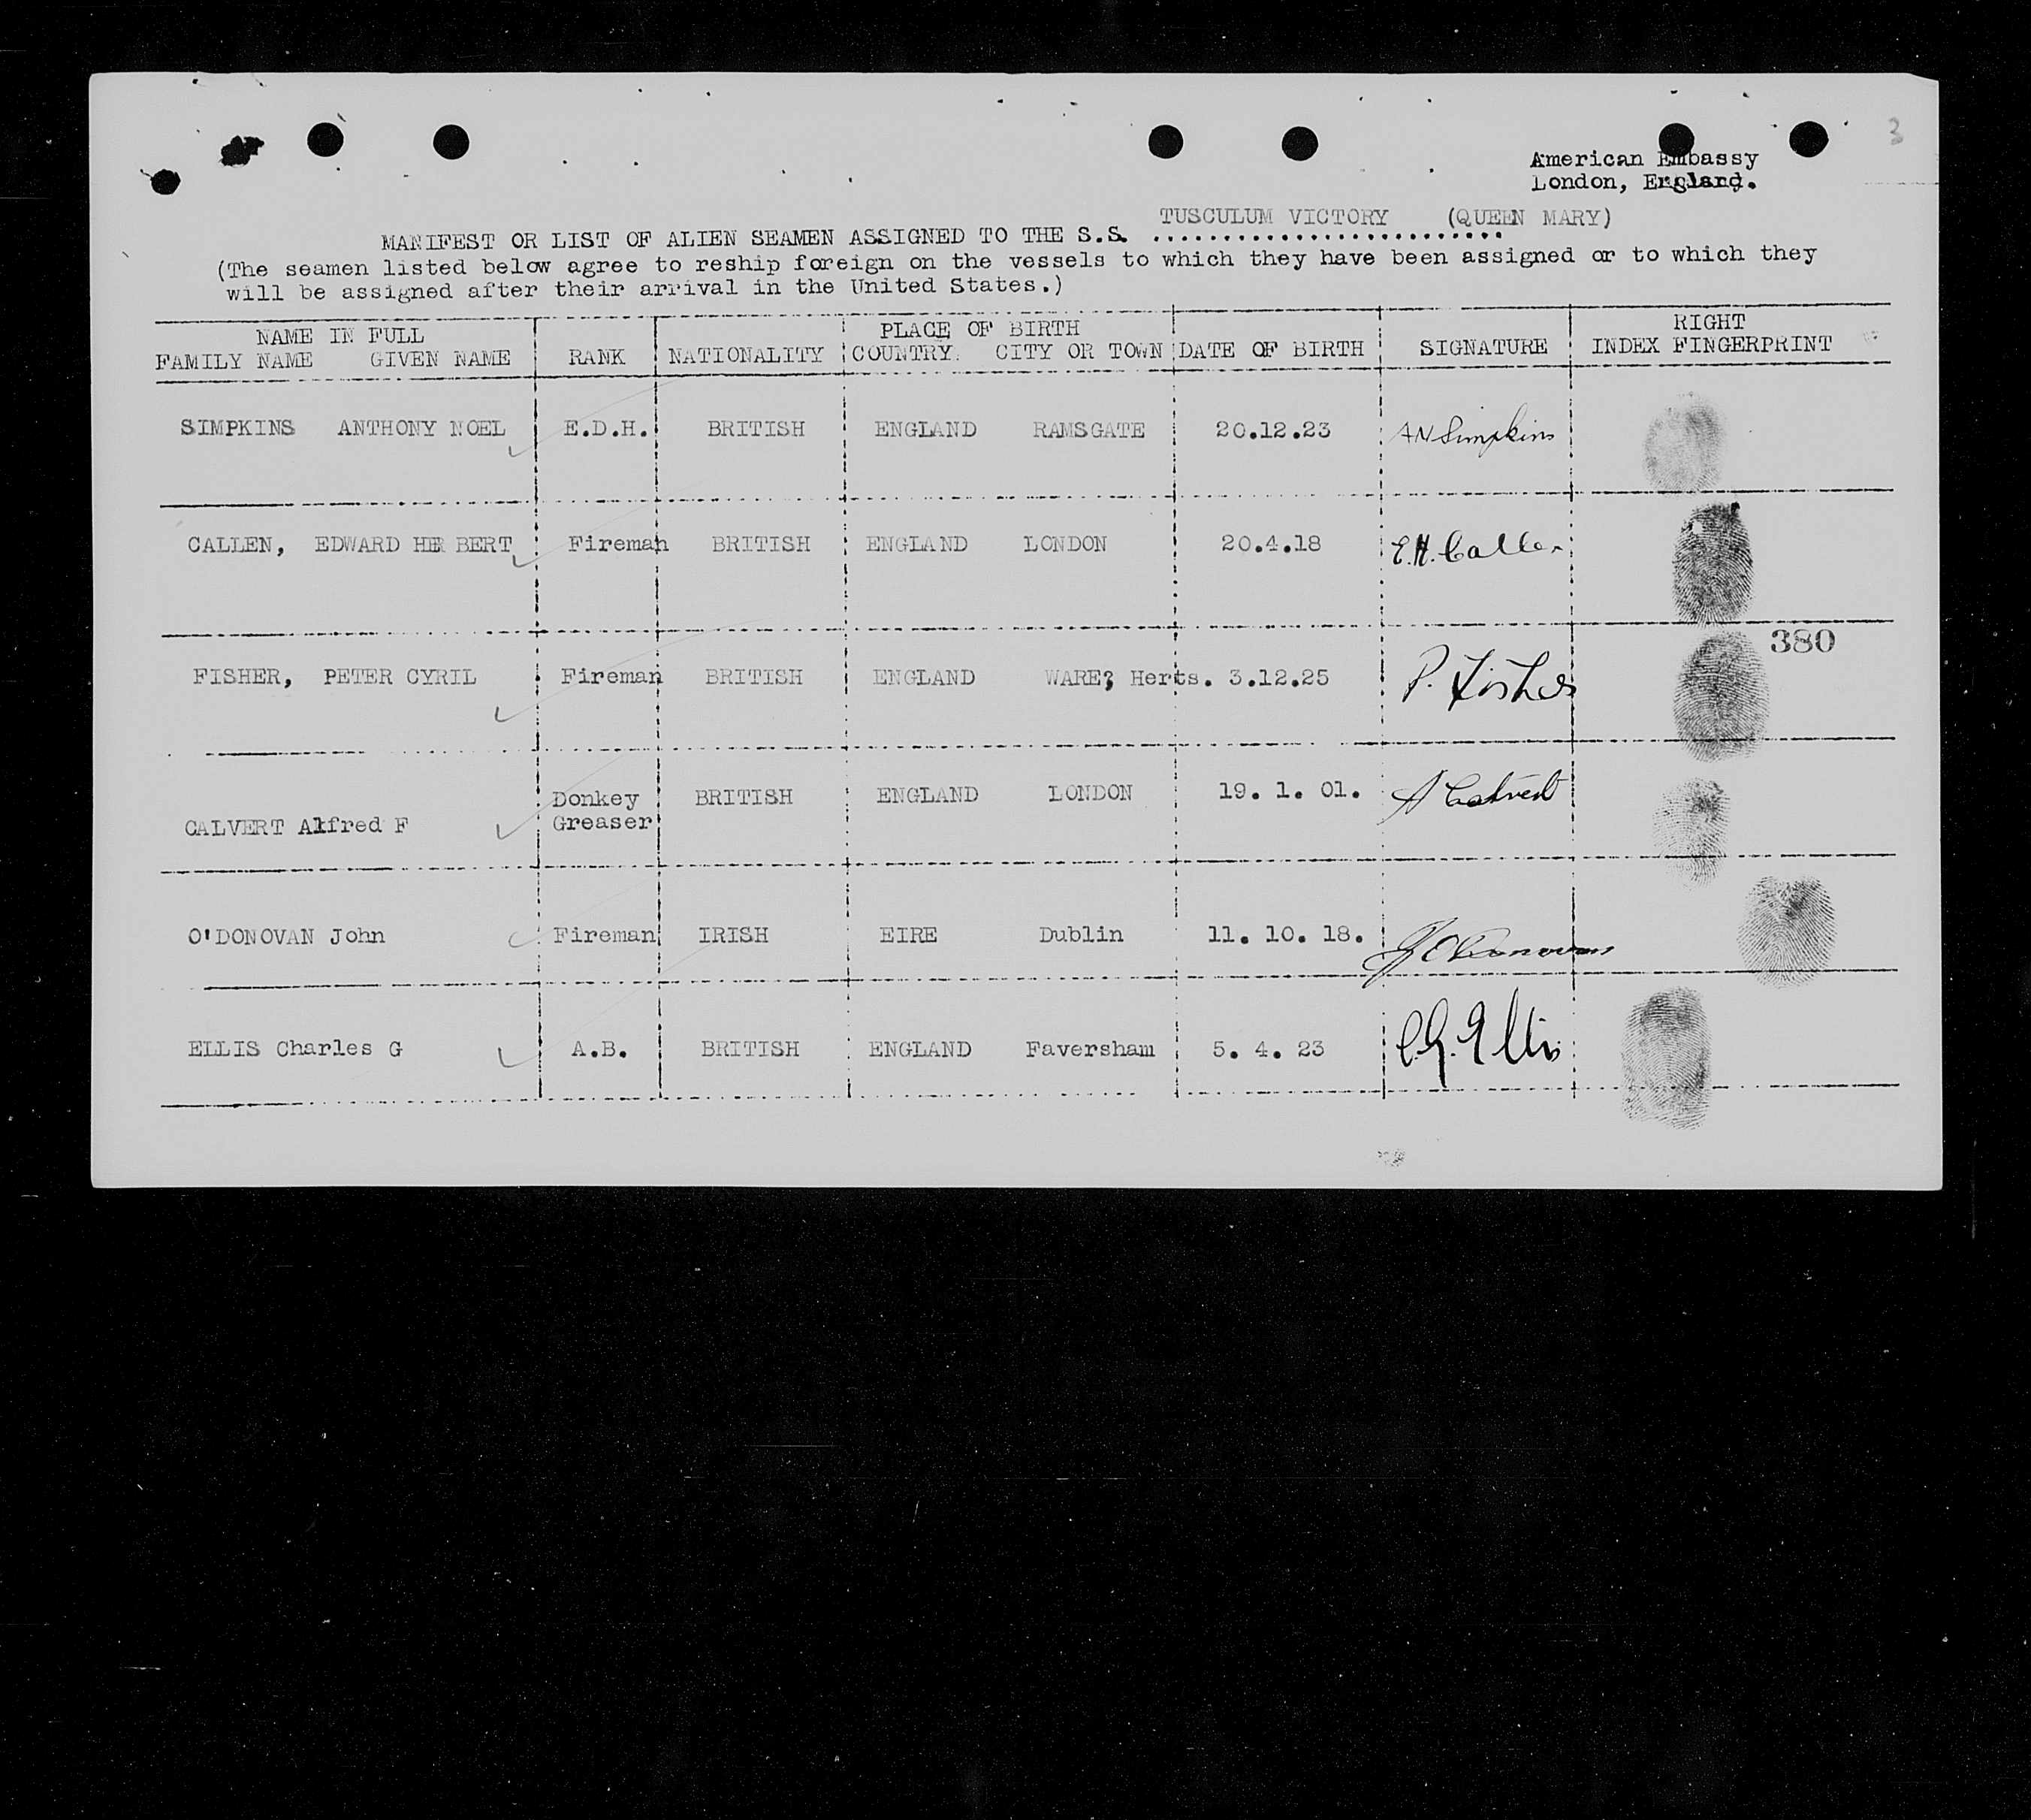 3
American Embassy
London, England.
TUSCULUM VICTORY (QUEEN MARY)
MANIFEST OR LIST OF ALIEN SEAMEN ASSIGNED TO THE S.S. ..........................
(The seamen listed below agree to reship foreign on the vessels to which they have been assigned or to which they
will be assigned after their arrival in the United States.)
NAME IN FULL PLACE OF BIRTH RIGHT
FAMILY NAME GIVEN NAME RANK NATIONALITY COUNTRY. CITY OR TOWN DATE OF BIRTH SIGNATURE INDEX FINGERPRINT
SIMPKINS ANTHONY NOEL E.D.H. BRITISH ENGLAND RAMSGATE 20.12.23 A N Simpkins
CALLEN, EDWARD HER BERT Fireman BRITISH ENGLAND LONDON 20.4.18 E.H. Callen
380
FISHER, PETER CYRIL Fireman BRITISH ENGLAND WARE? Herts. 3.12.25 P. Fisher
Donkey BRITISH ENGLAND LONDON 19. 1. 01. A Calvert
CALVERT Alfred F Greaser
O'DONOVAN John Fireman IRISH EIRE Dublin 11. 10. 18. J O'Donovan
ELLIS Charles G A.B. BRITISH ENGLAND Faversham 5. 4. 23 C.G. Ellis